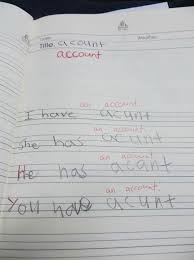 Title: acount
account
an account.
I have acunt
an account.
she has acunt
an account.
He has acunt
an account.
You have acunt